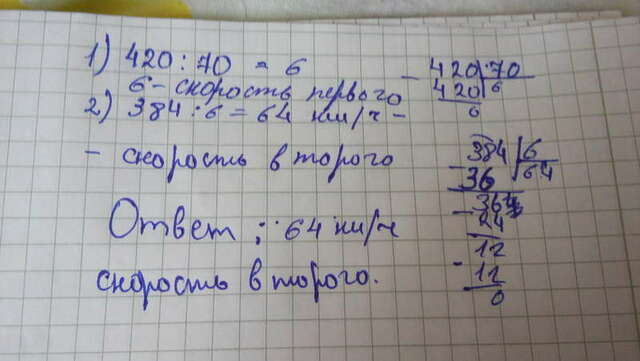 1) 420 : 70 = 6
6 - скорость первого
2) 384 : 6 = 64 км/ч -
- скорость второго
Ответ : 64 км/ч
скорость второго.
- 420 70
420 6
0
- 384 6
36 64
- 24
12
- 12
0